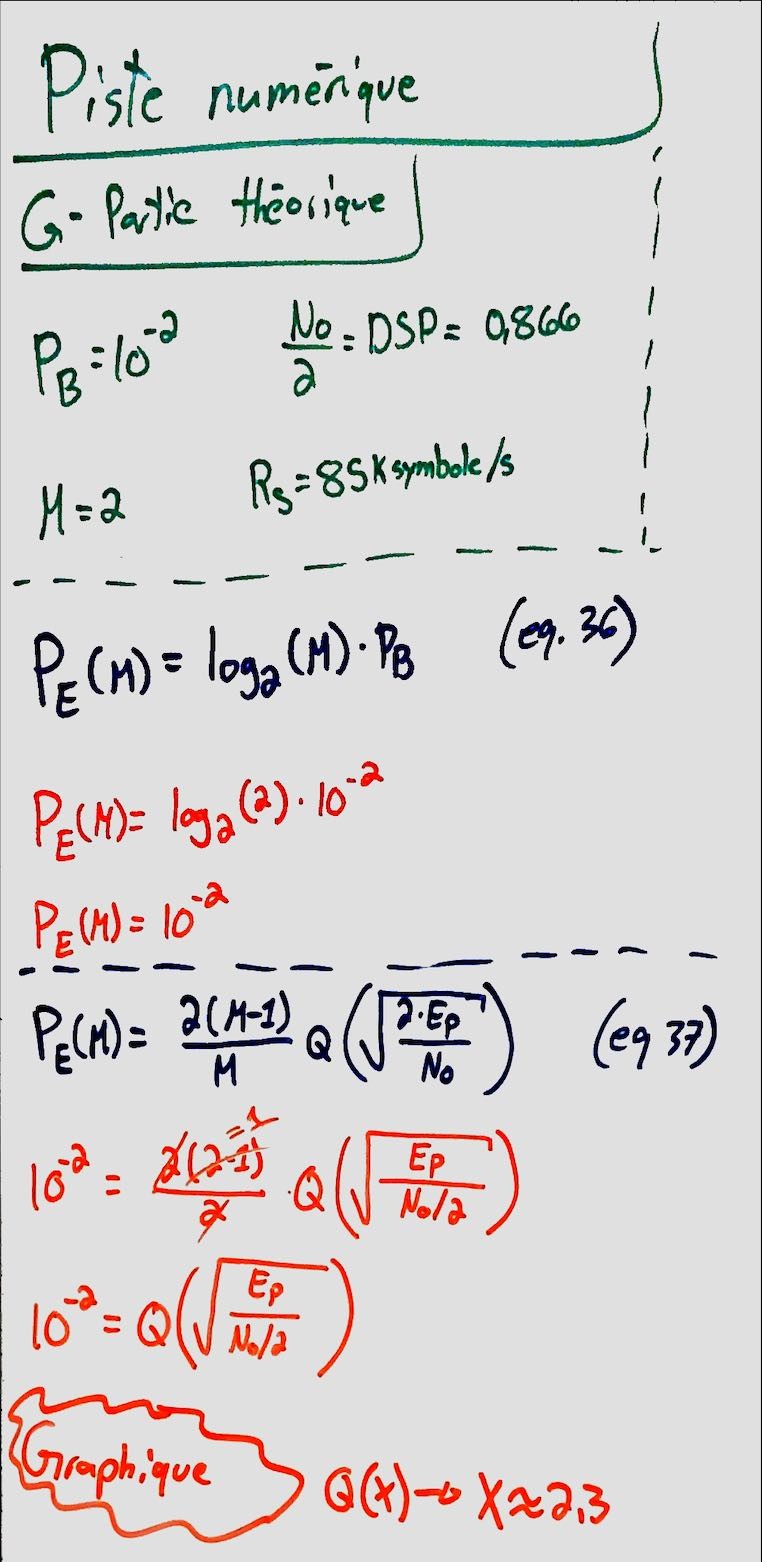 Piste numérique
G- Partie théorique
P_B = 10^-2    No/2 = DSP = 0,866
M = 2    R_s = 85K symbole/s
P_E(M) = log_2(M) · P_B    (eq. 36)
P_E(M) = log_2(2) · 10^-2
P_E(M) = 10^-2
P_E(M) = 2(M-1)/M Q(√(2·Ep/No))    (eq 37)
10^-2 = 2(2-1)/2 =1 · Q(√(Ep/(No/2)))
10^-2 = Q(√(Ep/(No/2)))
Graphique    Q(x) → X ≈ 2,3